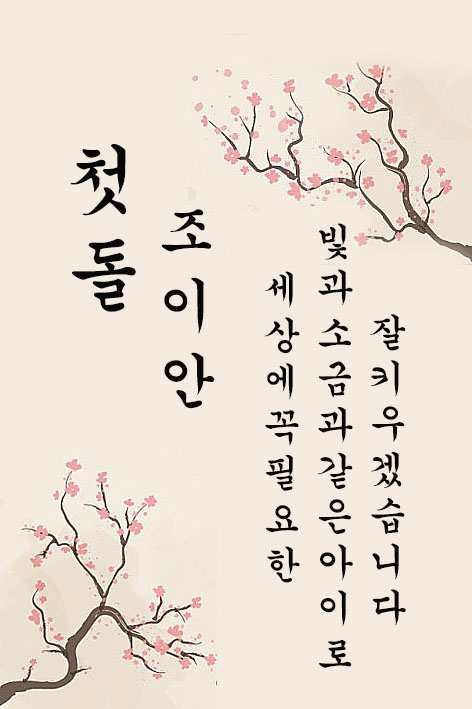 첫돌
조이안
세상에꼭필요한
빛과소금과같은아이로
잘키우겠습니다